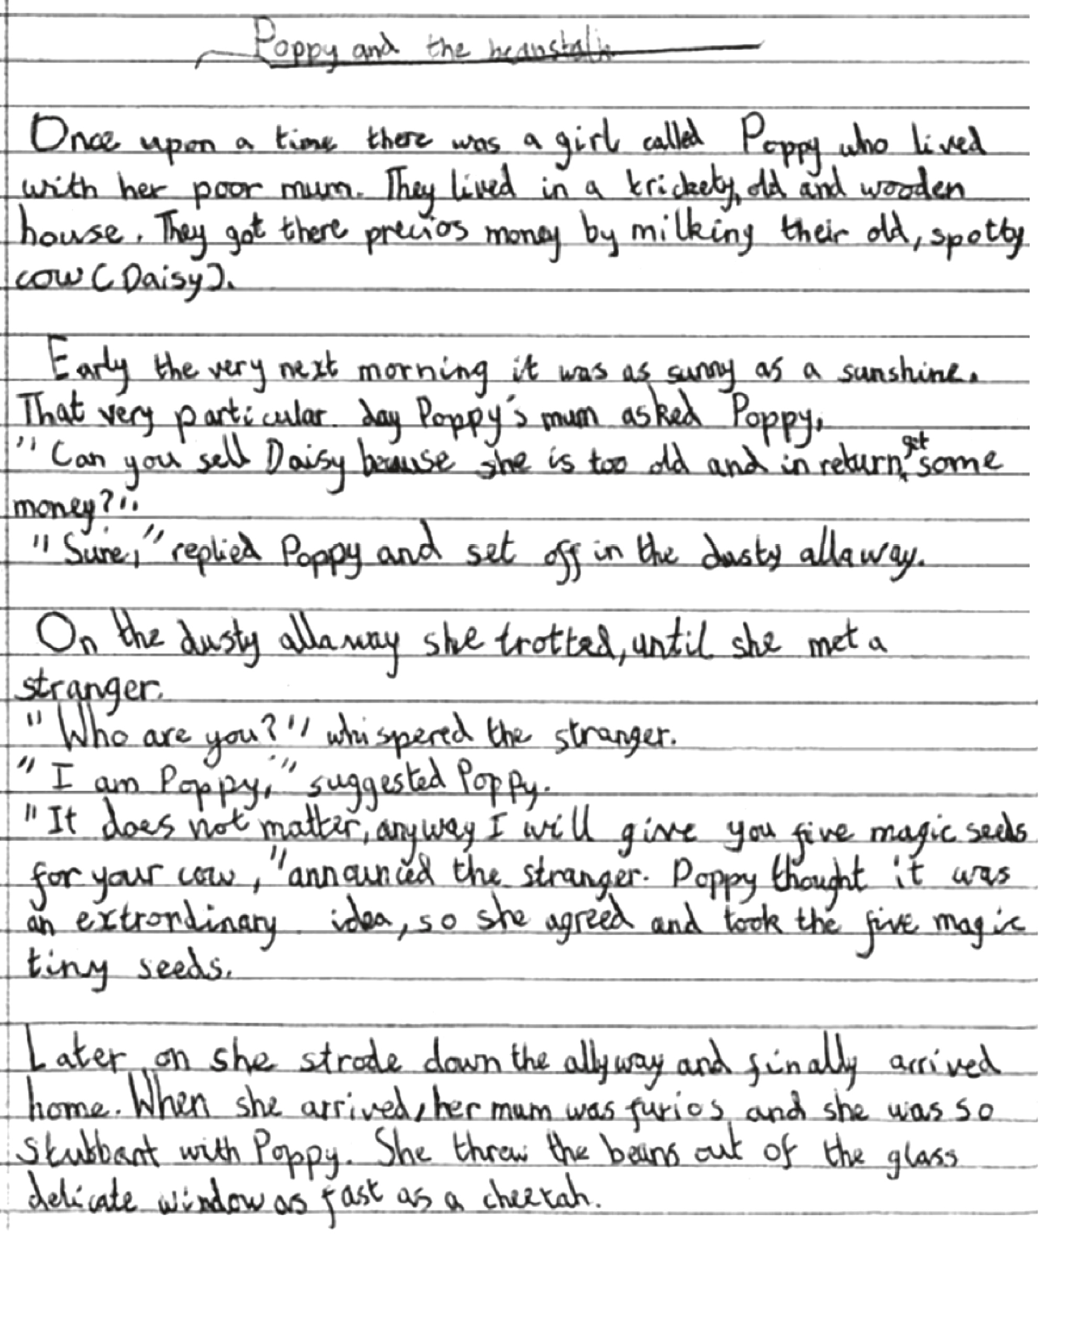 Poppy and the beanstalk
Once upon a time there was a girl called Poppy who lived
with her poor mum. They lived in a krickety, old and wooden
house. They got there precios money by milking their old, spotty
cow (Daisy).
Early the very next morning it was as sunny as a sunshine.
That very particular day Poppy's mum asked Poppy,
"Can you sell Daisy beause she is too old and in return, get some
money?".
"Sure," replied Poppy and set off in the dusty allaway.
On the dusty allaway she trotted, until she met a
stranger.
"Who are you?" whispered the stranger.
"I am Poppy," suggested Poppy.
"It does not matter, anyway I will give you five magic seeds
for your cow," announced the stranger. Poppy thought it was
an extrordinary idea, so she agreed and took the five magic
tiny seeds.
Later on she strode down the allyway and finally arrived
home. When she arrived, her mum was furios and she was so
stubbant with Poppy. She threw the beans out of the glass
delicate window as fast as a cheetah.